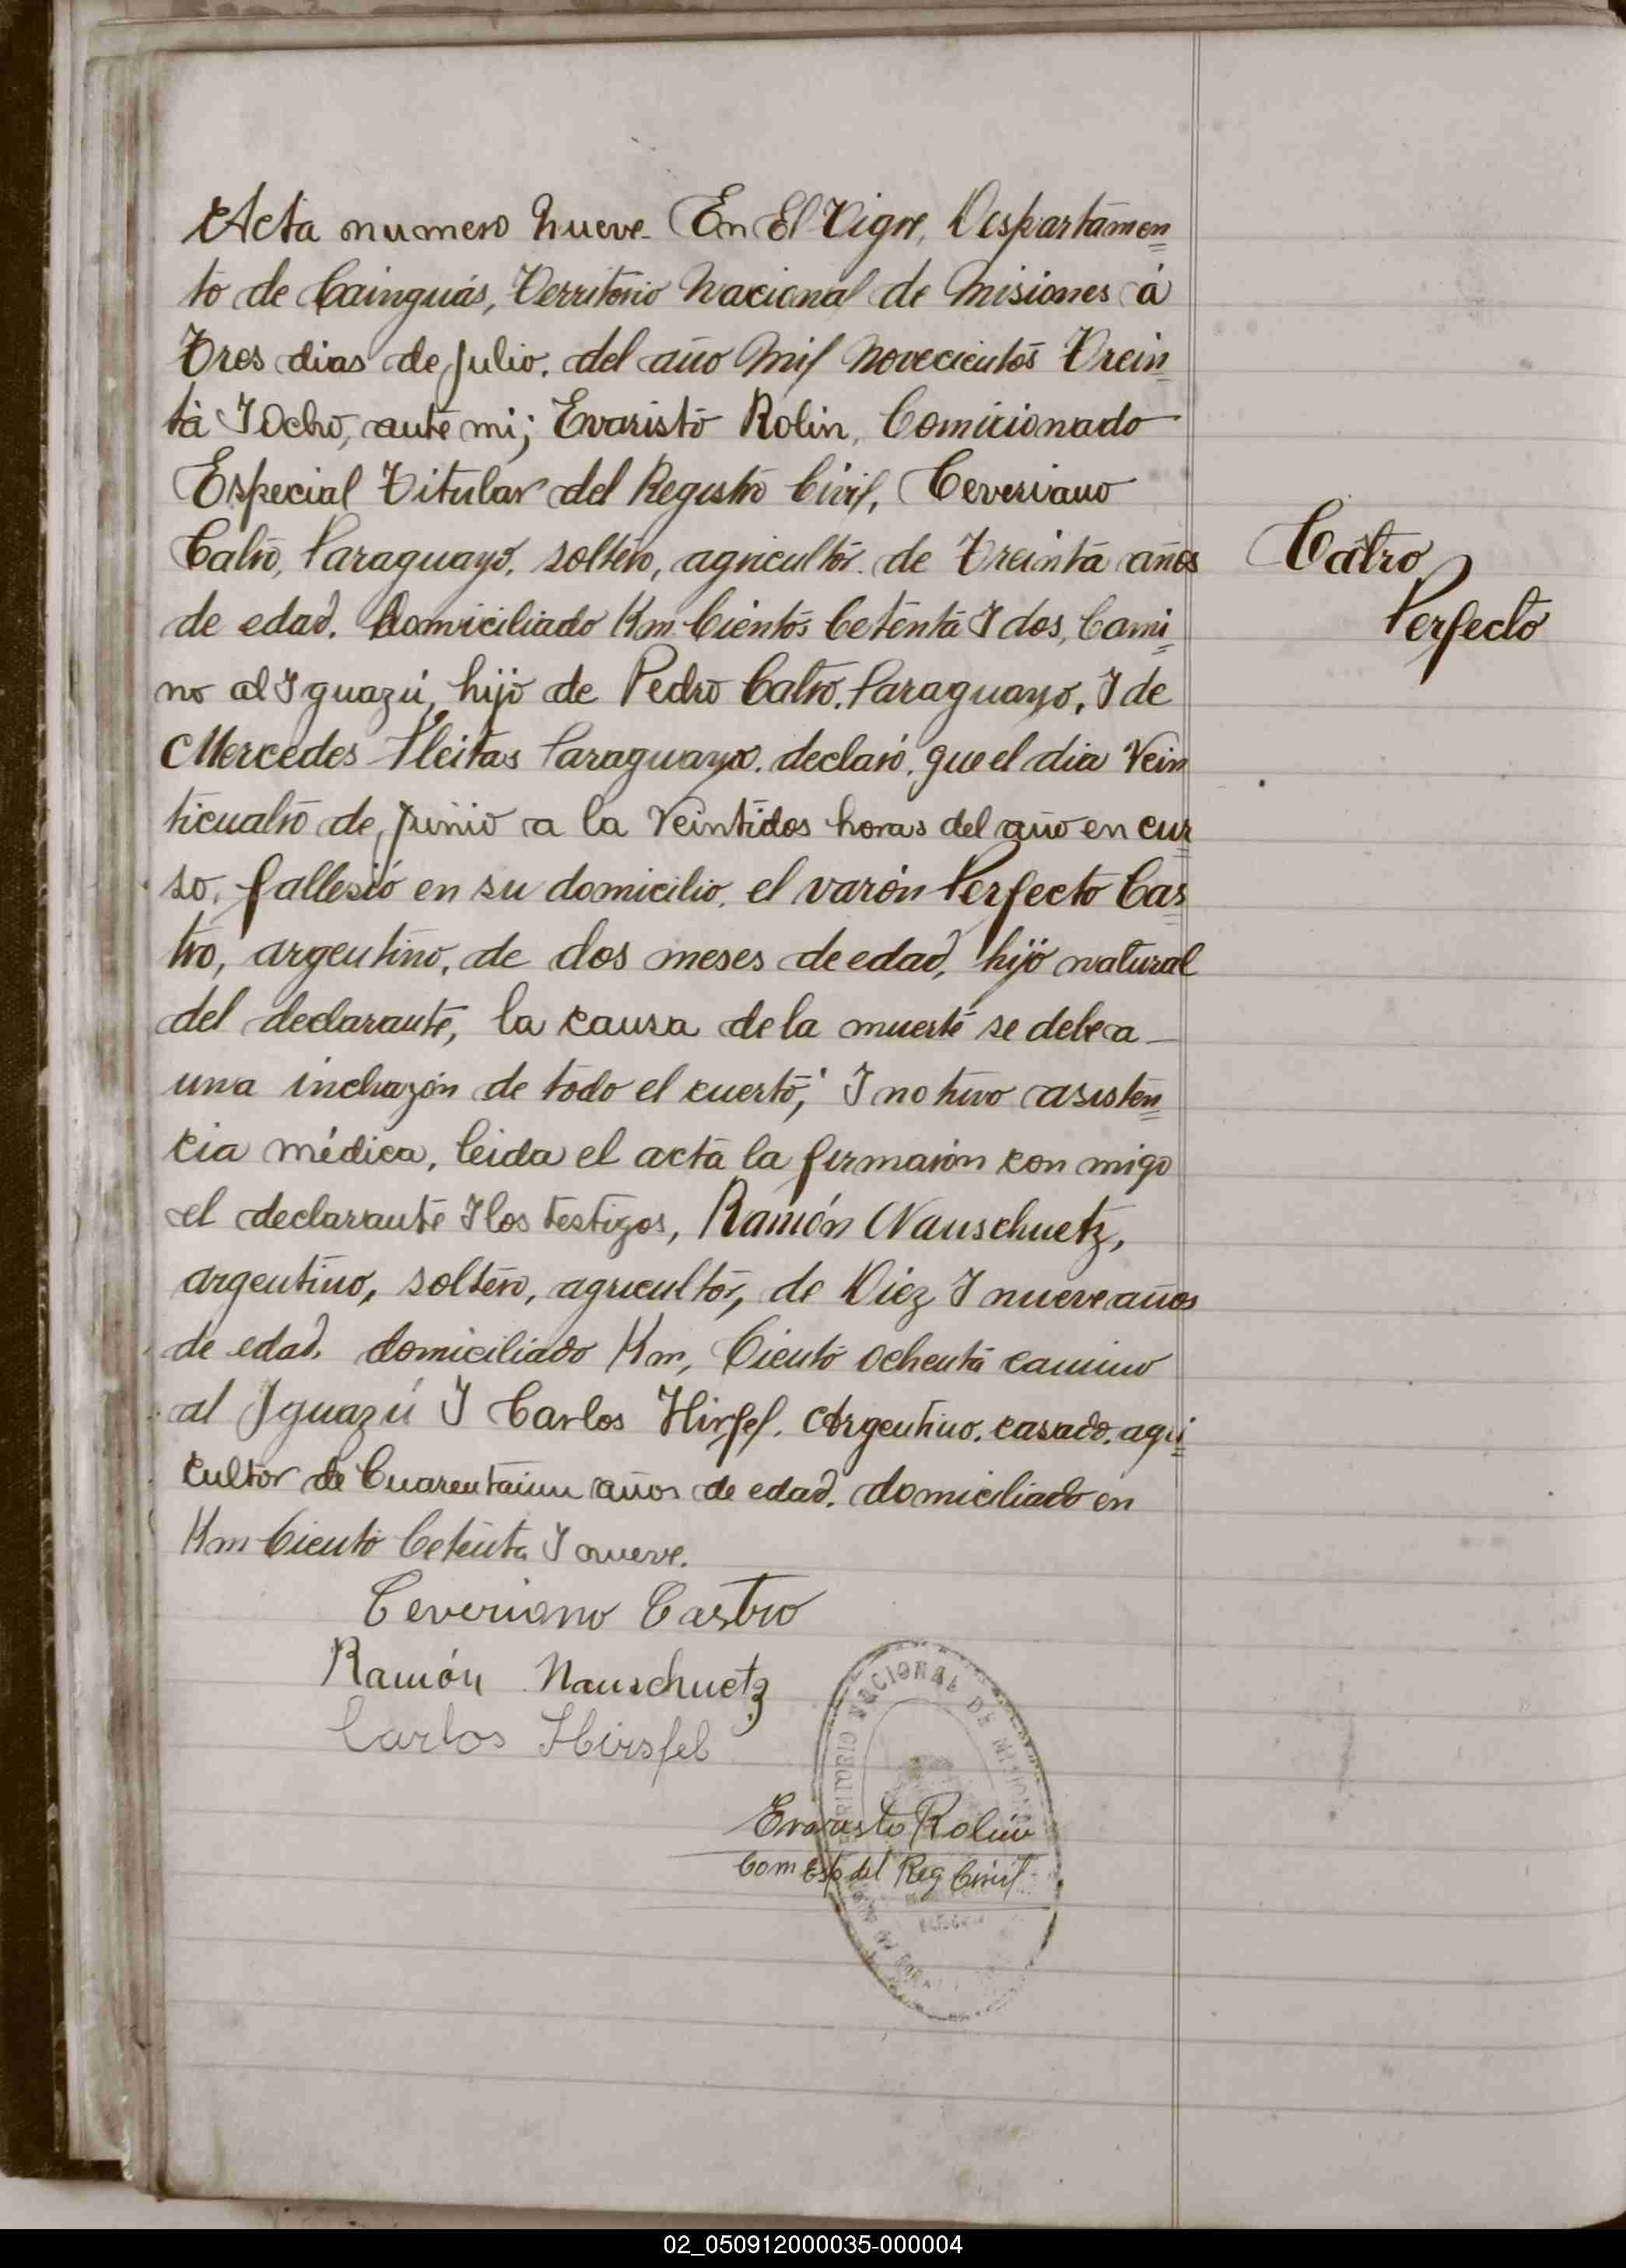 Acta numero nueve. En El Tigre, Despartamen=
to de Cainguás, Territorio Nacional de Misiones á
Tres dias de Julio. del año Mil Novecientos Trein
ta I Ocho, ante mi; Evaristo Rolin, Comicionado
Especial Titular del Registro Civil, Ceveriano
Catro, Paraguayo, soltero, agricultor. de Treinta años
Catro
Perfecto
de edad. Domiciliado Km. Cientos Cetenta I dos, Cami=
no al Iguazú, hijo de Pedro Catro. Paraguayo, I de
Mercedes Fleitas Paraguaya. declaró, que el dia Vein
ticuatro de Junio a la Veintidos horas del año en cur
so, fallesió en su domicilio, el varón Perfecto Cas
tro, argentino, de dos meses de edad, hijo natural
del declarante, la causa de la muerte se debe a
una inchazón de todo el cuerto; I no tuvo asisten=
cia médica, leida el acta la firmarón con migo
el declarante I los testigos, Ramón Nauschuetz,
argentino, soltero, agricultor, de Diez I nueve años
de edad, domiciliado Km, Ciento Ochenta camino
al Iguazú I Carlos Hirsfel. Argentino. casado. agri
cultor de Cuarentaiun años de edad. domiciliado en
Km Ciento Cetenta I nueve.
Ceveriano Castro
Ramón Nauschuetz
Carlos Hirsfel
TERRITORIO NACIONAL DE MISIONES
Evaristo Rolin
Com Esp del Reg Civil
02_050912000035-000004